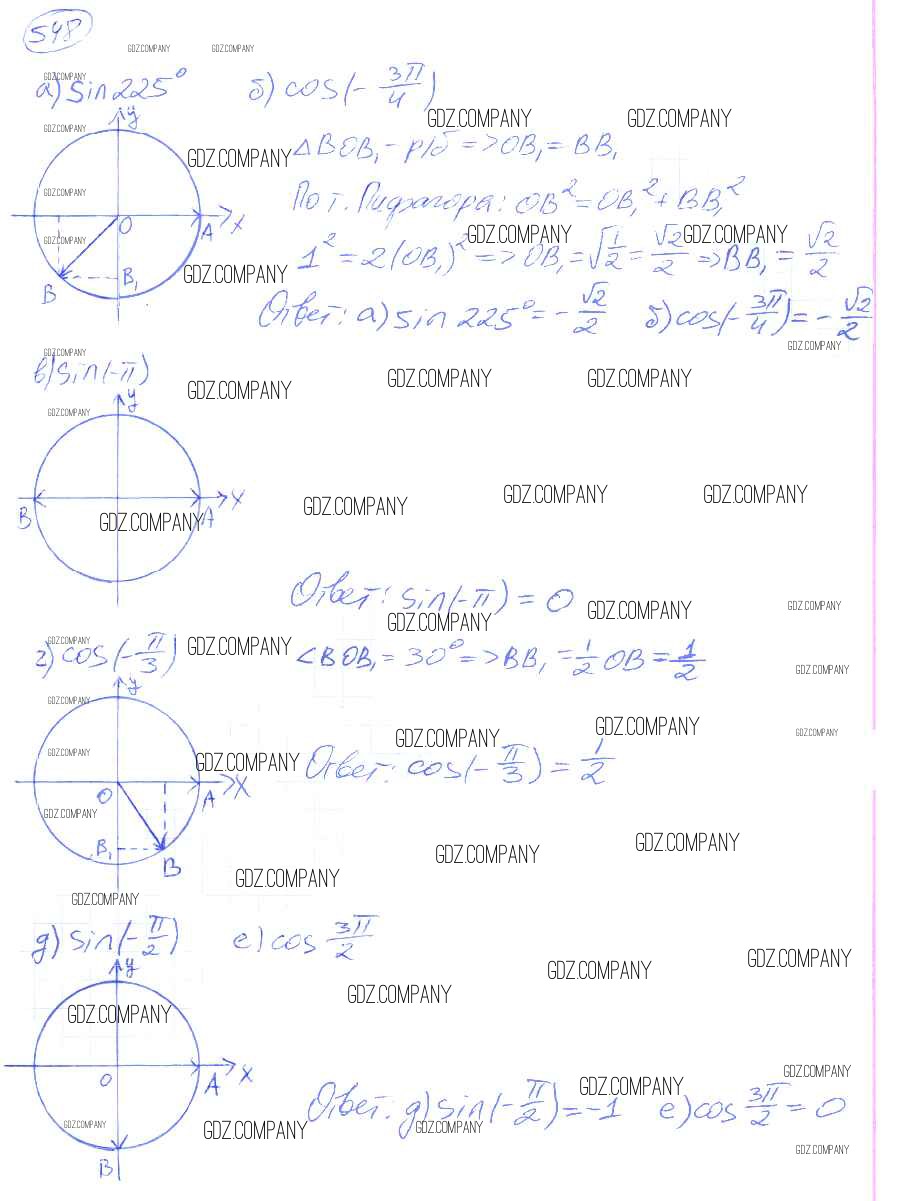 548
GDZ.COMPANY GDZ.COMPANY
GDZ.COMPANY
а) sin 225° б) cos(-3π/4)
GDZ.COMPANY GDZ.COMPANY
y
GDZ.COMPANY
GDZ.COMPANY △BOB₁ - р/б => OB₁ = BB₁
GDZ.COMPANY
По т. Пифагора: OB² = OB₁² + BB₁²
O A X
GDZ.COMPANY GDZ.COMPANY GDZ.COMPANY
1² = 2(OB₁)² => OB₁ = √1/2 = √2/2 => BB₁ = √2/2
GDZ.COMPANY
B B₁
Ответ: а) sin 225° = -√2/2 б) cos(-3π/4) = -√2/2
GDZ.COMPANY
GDZ.COMPANY
в) sin(-π)
GDZ.COMPANY GDZ.COMPANY GDZ.COMPANY
y
GDZ.COMPANY
X
GDZ.COMPANY GDZ.COMPANY GDZ.COMPANY
B A
GDZ.COMPANY
Ответ: sin(-π) = 0
GDZ.COMPANY GDZ.COMPANY GDZ.COMPANY
GDZ.COMPANY GDZ.COMPANY
г) cos(-π/3) ∠BOB₁ = 30° => BB₁ = 1/2 OB = 1/2
GDZ.COMPANY
y
GDZ.COMPANY
GDZ.COMPANY GDZ.COMPANY GDZ.COMPANY
GDZ.COMPANY
GDZ.COMPANY Ответ: cos(-π/3) = 1/2
O A X
GDZ.COMPANY
B₁ B
GDZ.COMPANY GDZ.COMPANY
GDZ.COMPANY
GDZ.COMPANY
д) sin(-π/2) е) cos 3π/2
y
GDZ.COMPANY GDZ.COMPANY
GDZ.COMPANY
GDZ.COMPANY
O A X
GDZ.COMPANY GDZ.COMPANY
Ответ: д) sin(-π/2) = -1 е) cos 3π/2 = 0
GDZ.COMPANY GDZ.COMPANY GDZ.COMPANY
GDZ.COMPANY
B